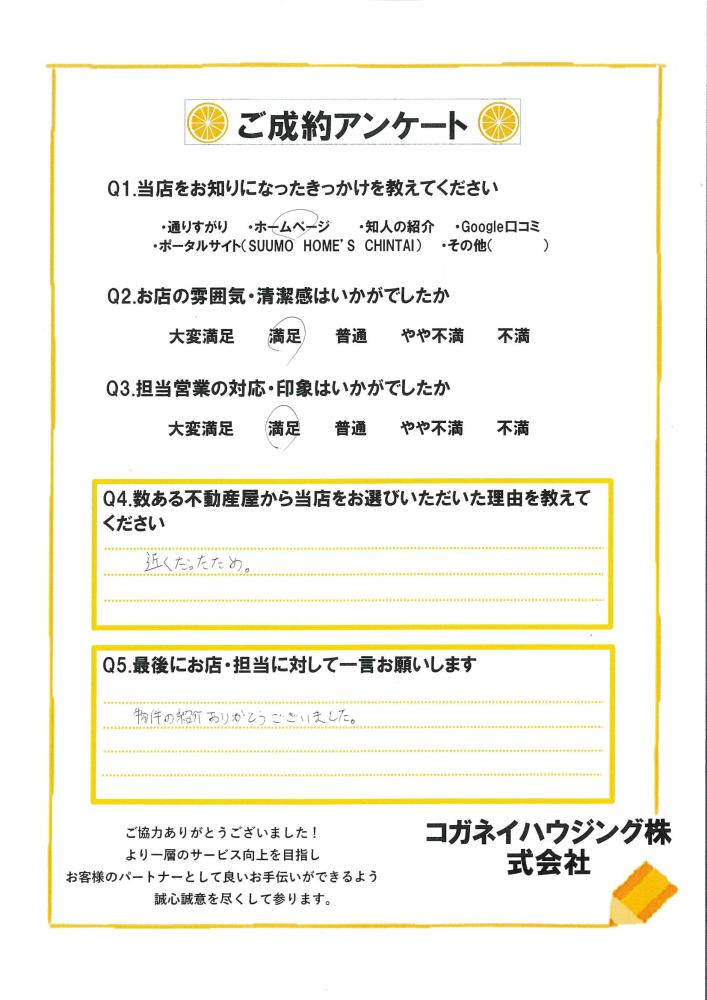 ご成約アンケート
Q1.当店をお知りになったきっかけを教えてください
・通りすがり ・ホームページ ・知人の紹介 ・Google口コミ
・ポータルサイト(SUUMO HOME'S CHINTAI) ・その他( )
Q2.お店の雰囲気・清潔感はいかがでしたか
大変満足 満足 普通 やや不満 不満
Q3.担当営業の対応・印象はいかがでしたか
大変満足 満足 普通 やや不満 不満
Q4.数ある不動産屋から当店をお選びいただいた理由を教えて
ください
近くだったため。
Q5.最後にお店・担当に対して一言お願いします
物件の紹介ありがとうございました。
ご協力ありがとうございました！
より一層のサービス向上を目指し
お客様のパートナーとして良いお手伝いができるよう
誠心誠意を尽くして参ります。
コガネイハウジング株
式会社